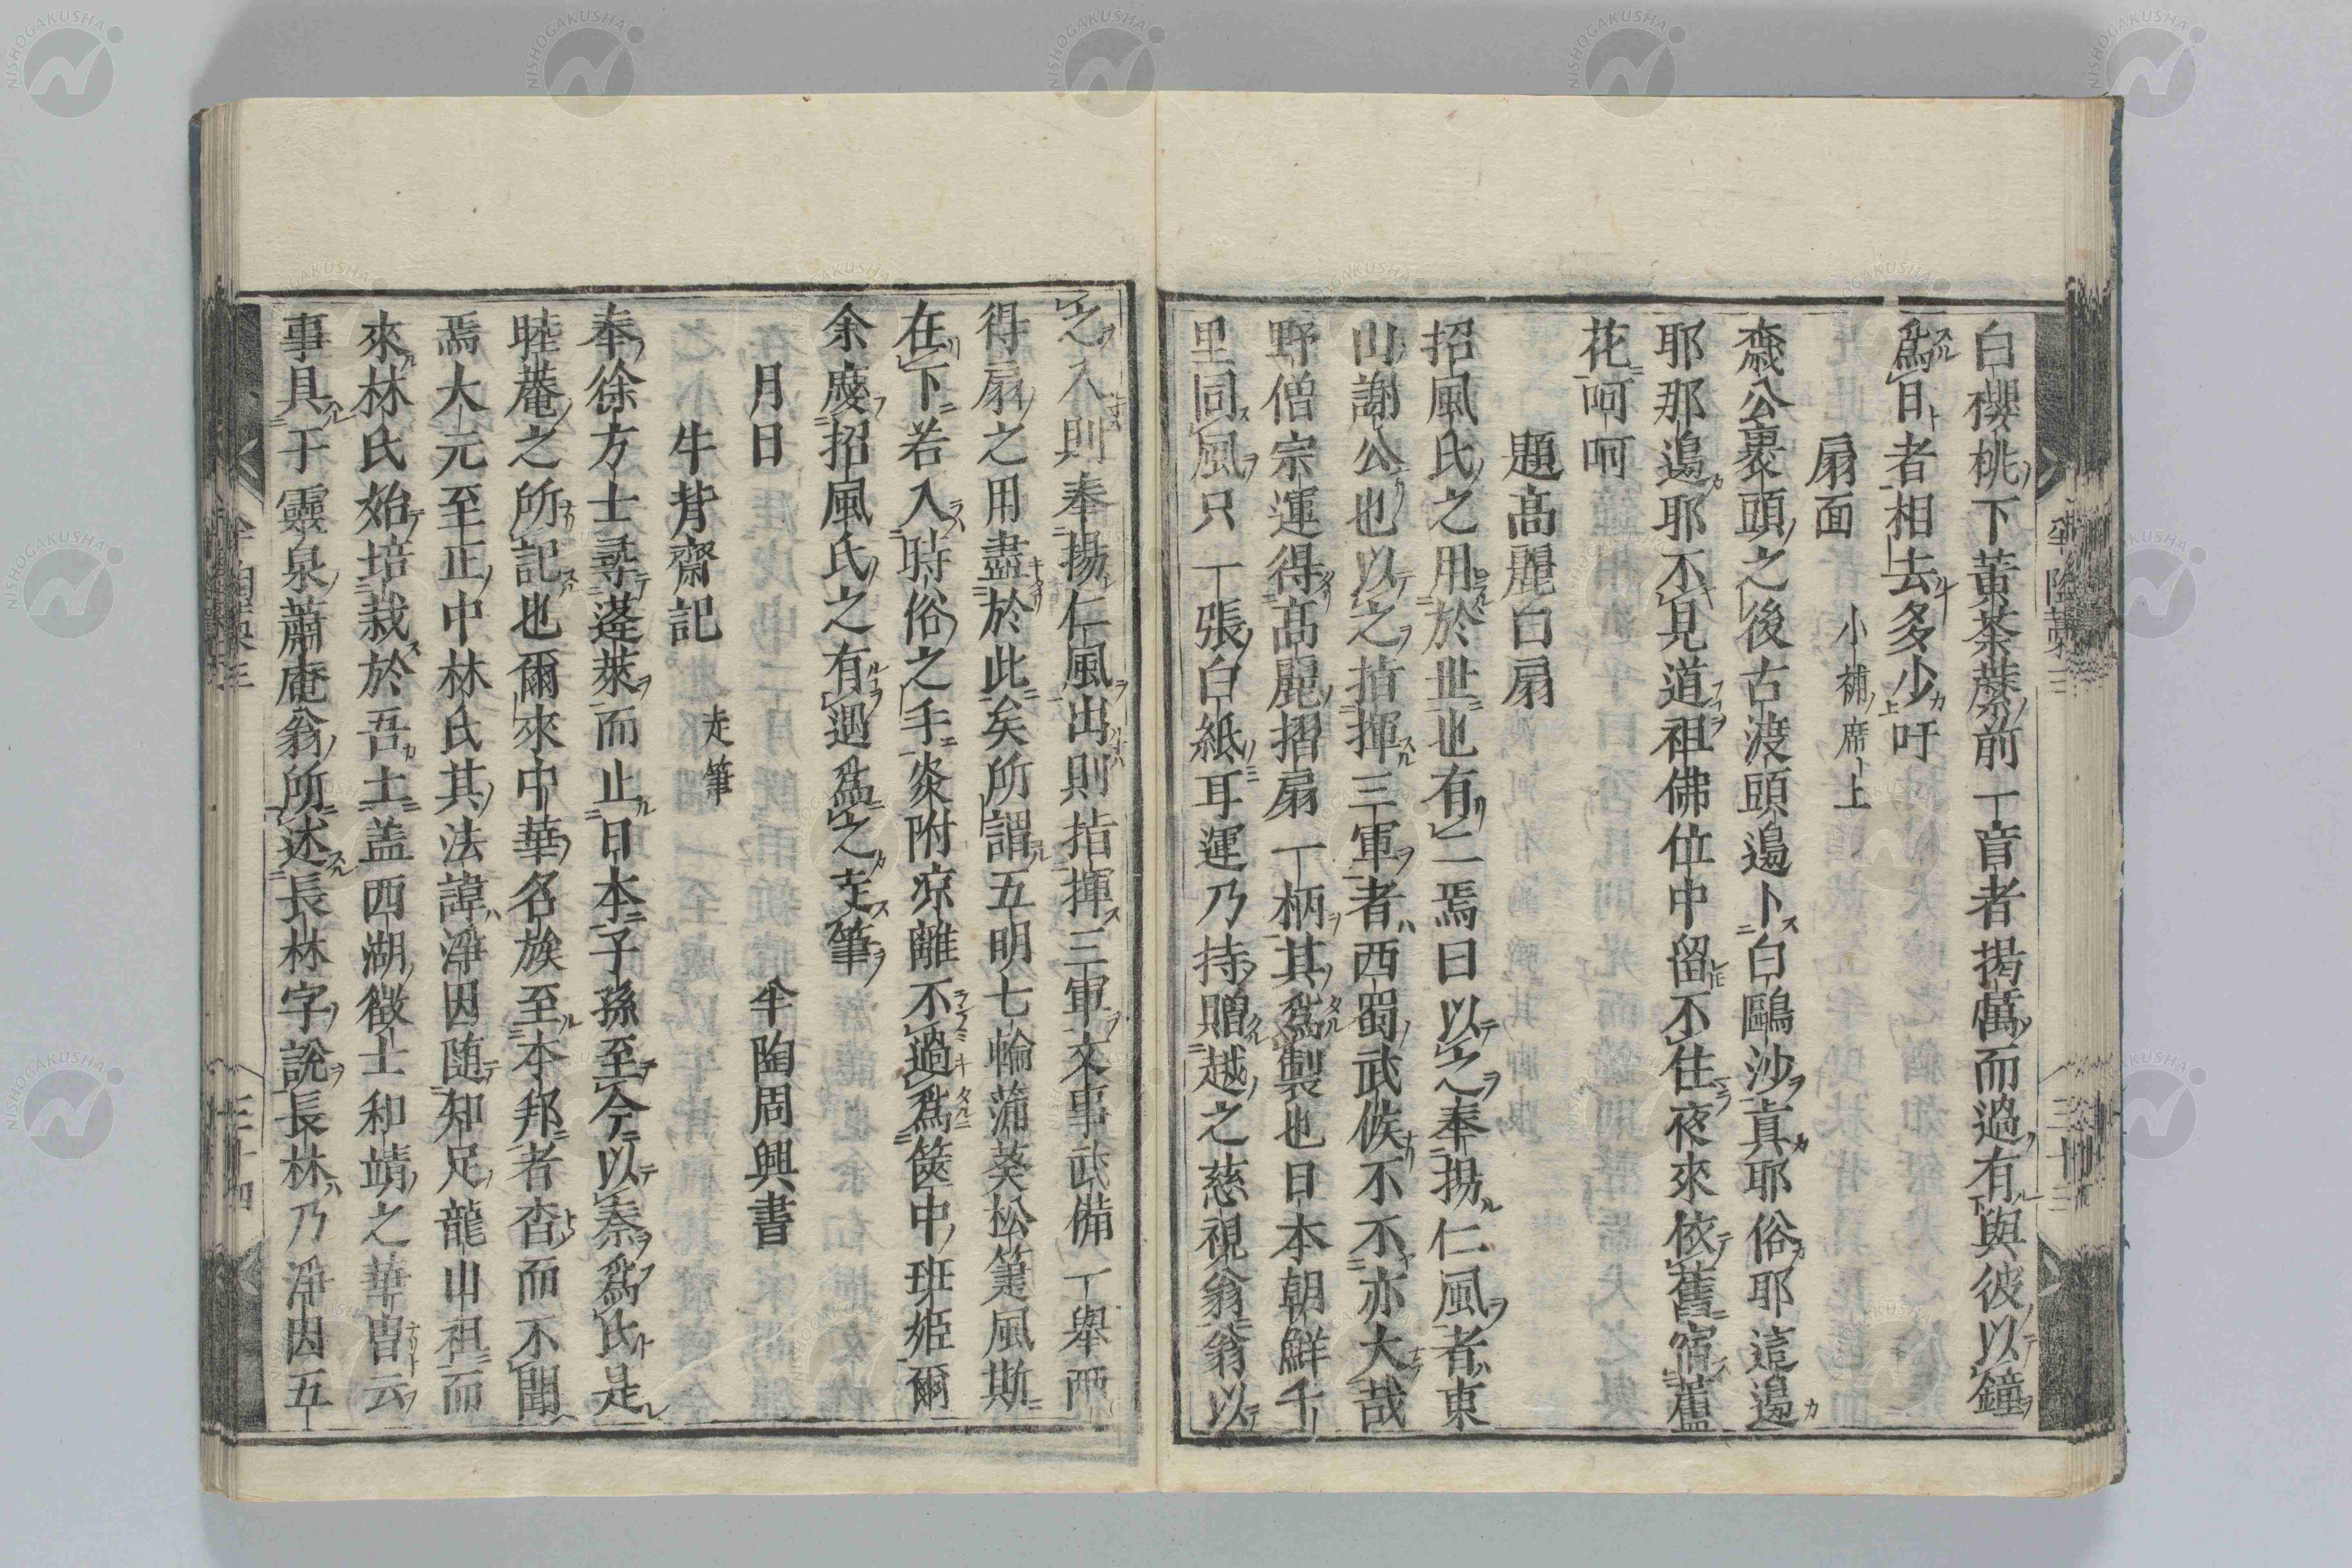 白櫻桃下黃荼蘼前一盲者揭㡢而過有與彼以鐘
爲日者相去多少吁
扇面 小補席上
齋公裹頭之後古渡頭邊卜白鷗沙真耶俗耶這邊
耶那邊耶不見道祖佛位中留不住夜來依舊宿蘆
花呵呵
題髙麗白扇
招風氏之用於世也有二焉曰以之奉揚仁風者東
山謝公也以之揩揮三軍者西蜀武候不不亦大哉
野僧宗運得髙麗摺扇一柄其爲製也日本朝鮮千
里同風只一張白紙耳運乃持贈越之慈視翁翁以
之入則奉揚仁風出則指揮三軍文事武備一舉兩
得扇之用盡於此矣所謂五明七輪蒲葵松箑風斯
在下若入時俗之手炎附凉離不過爲篋中班姬爾
余慶招風氏之有遇爲之走筆
月日 半陶周興書
牛背齋記 走筆
奉徐方士尋蓬萊而止日本子孫至今以秦爲氏是
睦菴之所記也爾來中華名族至本邦者杳而不聞
焉大元至正中林氏其法諱淨因随知足龍山祖而
來林氏始培栽於吾土盖西湖徵士和靖之華胄云
事具于靈泉蕭庵翁所述長林字說長林乃淨因五
半陶藁三 三十三